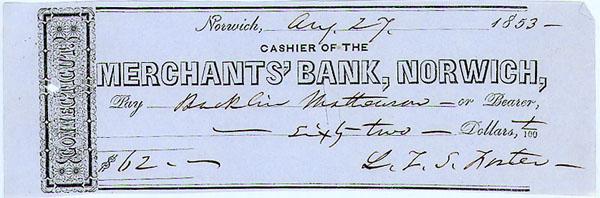 Norwich, Aug. 27. 1853 —
CASHIER OF THE
MERCHANTS' BANK, NORWICH,
Pay — Bucklin Mathewson — or Bearer,
— Sixty two — Dollars, /100
$62 — —
L. F. S. Foster —
CONNECTICUT.